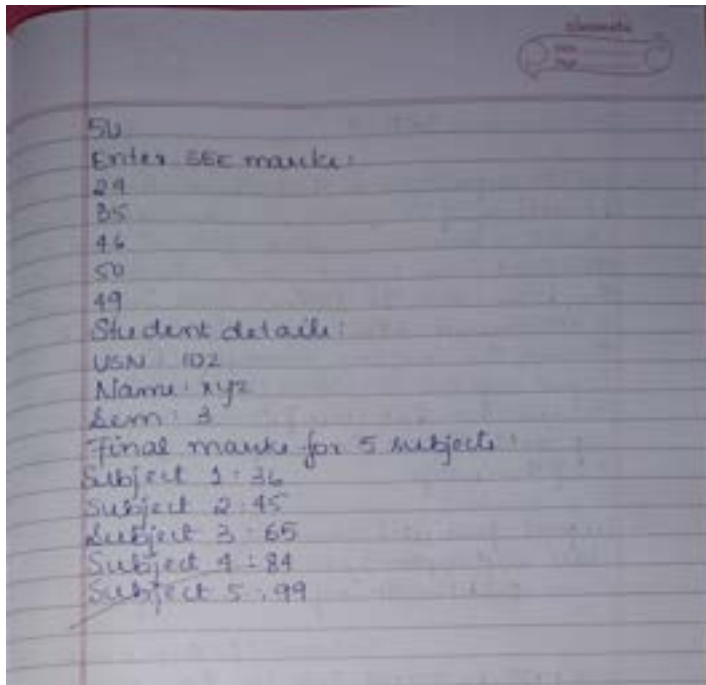 classmate
Date
Page
50
Enter SEE marks:
24
35
46
50
49
Student details:
USN: 102
Name: xyz
Sem: 3
Final marks for 5 subjects:
Subject 1: 36
Subject 2: 45
Subject 3: 65
Subject 4: 84
Subject 5: 99